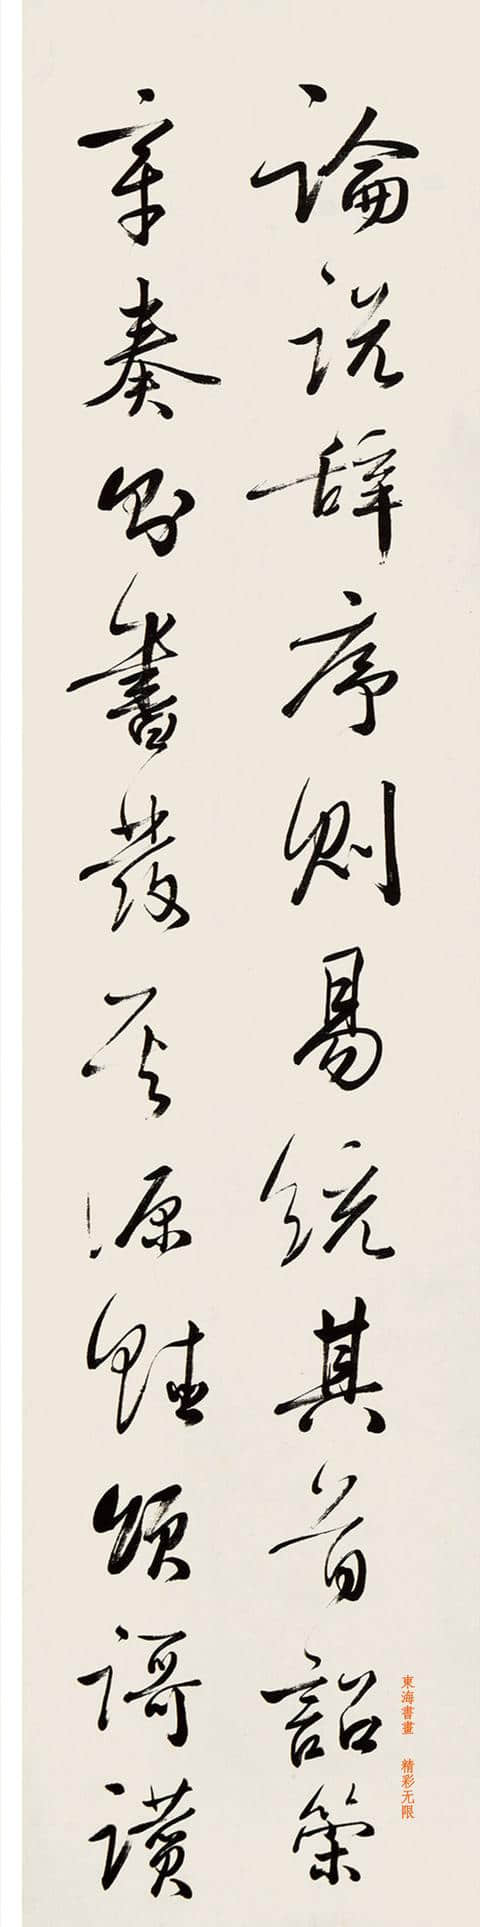 論説辞序則易統其首詔策
章奏則書發其源賦頌謌讃
東海書畫 精彩无限